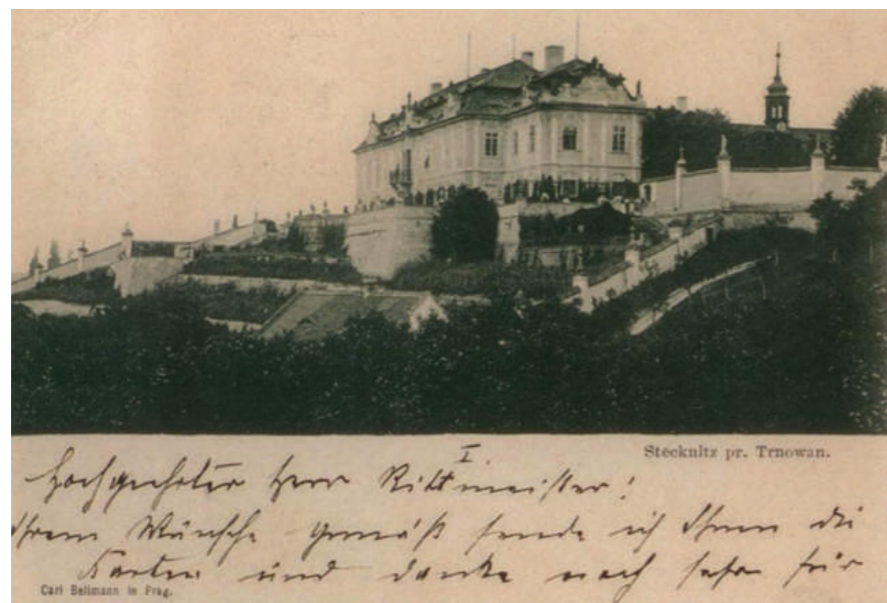 Stecknitz pr. Trnowan.
I
Hochgeehrter Herr Rittmeister!
Ihrem Wunsche gemäß sende ich Ihnen die
Karten und danke noch sehr für
Carl Bellmann in Prag.